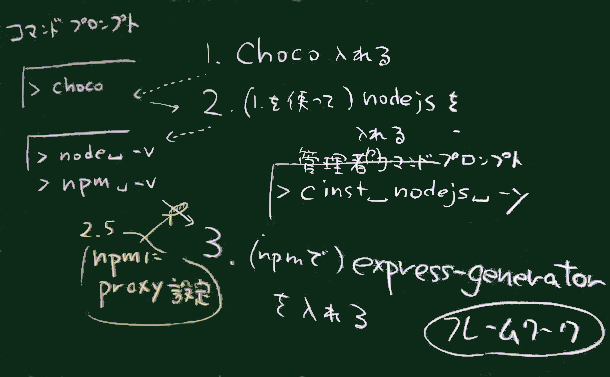 コマンド プロンプト
> choco
> node␣-v
> npm␣-v
1. Choco 入れる
2. (1.を使って) nodejs を
入れる
管理者的コマンドプロンプト
> cinst␣nodejs␣-y
2.5
npmに
proxy設定
3. (npmで) express-generator
を入れる
フレームワーク